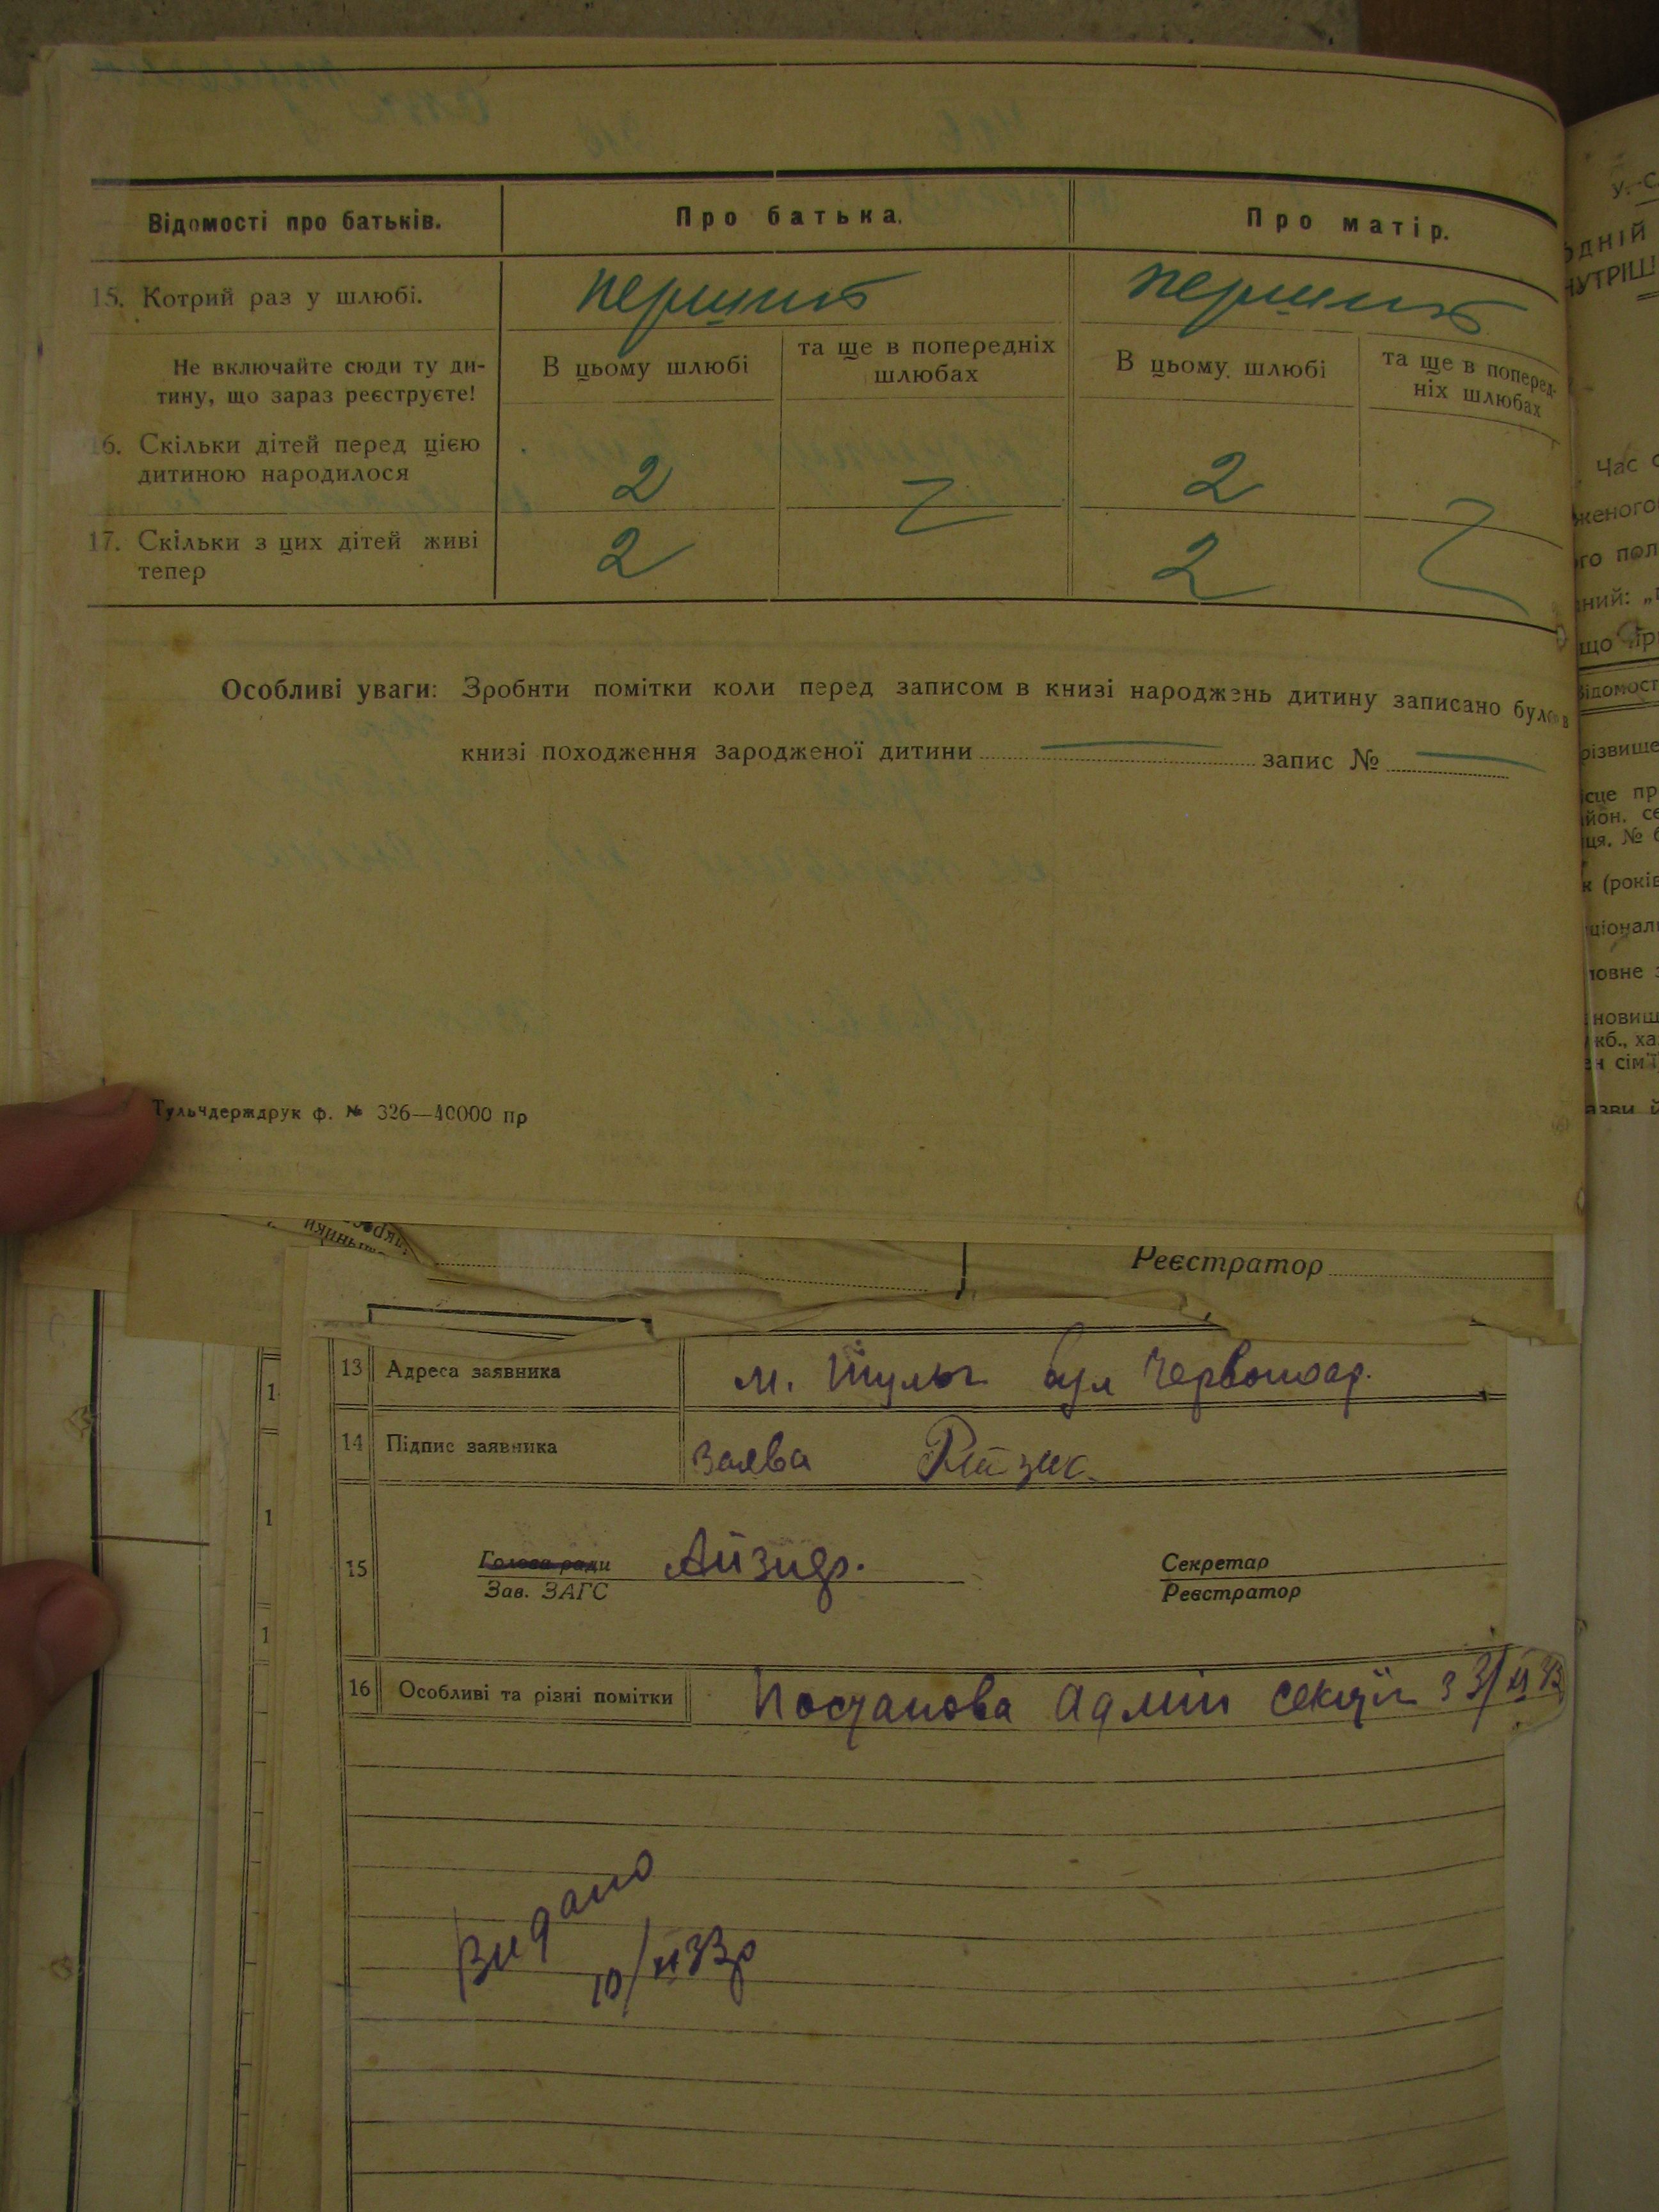 Відомості про батьків. Про батька. Про матір.
15. Котрий раз у шлюбі. перший перший
Не включайте сюди ту ди-
тину, що зараз реєструєте!
В цьому шлюбі та ще в попередніх
шлюбах
В цьому шлюбі та ще в поперед-
ніх шлюбах
16. Скільки дітей перед цією
дитиною народилося 2 2
17. Скільки з цих дітей живі
тепер 2 2
Особливі уваги: Зробнти помітки коли перед записом в книзі народжень дитину записано було в
книзі походження зародженої дитини запис №
Тульчдерждрук ф. № 326—40000 пр
Реєстратор
13 Адреса заявника м. Тульч вул Червоноар.
14 Підпис заявника заява
15 Голова ради
Зав. ЗАГС
Секретар
Реєстратор
16 Особливі та різні помітки Постанова Адмін секції з
Видано
10/XI 33р
У. С
ОДНІЙ
НУТРІШ
Час
женого
го пол
ний:
що
ідомост
різвище
сце пр
йон. се
ця. №
к (років
ціонал
ловне
новищ
кб., ха
н сім'ї